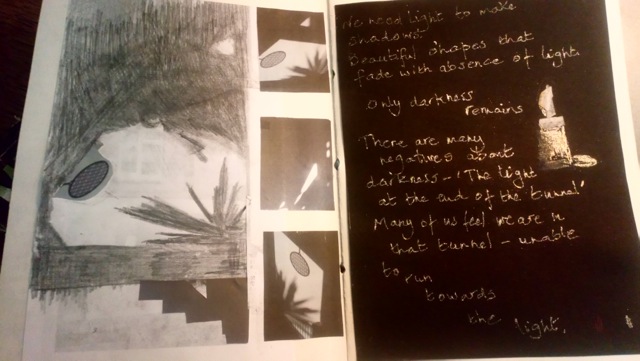 We need light to make
shadows.
Beautiful shapes that
fade with absence of light.
Only darkness
remains
There are many
negatives about
darkness - 'The light
at the end of the tunnel'
Many of us feel we are in
that tunnel - unable
to
run
towards
the light.